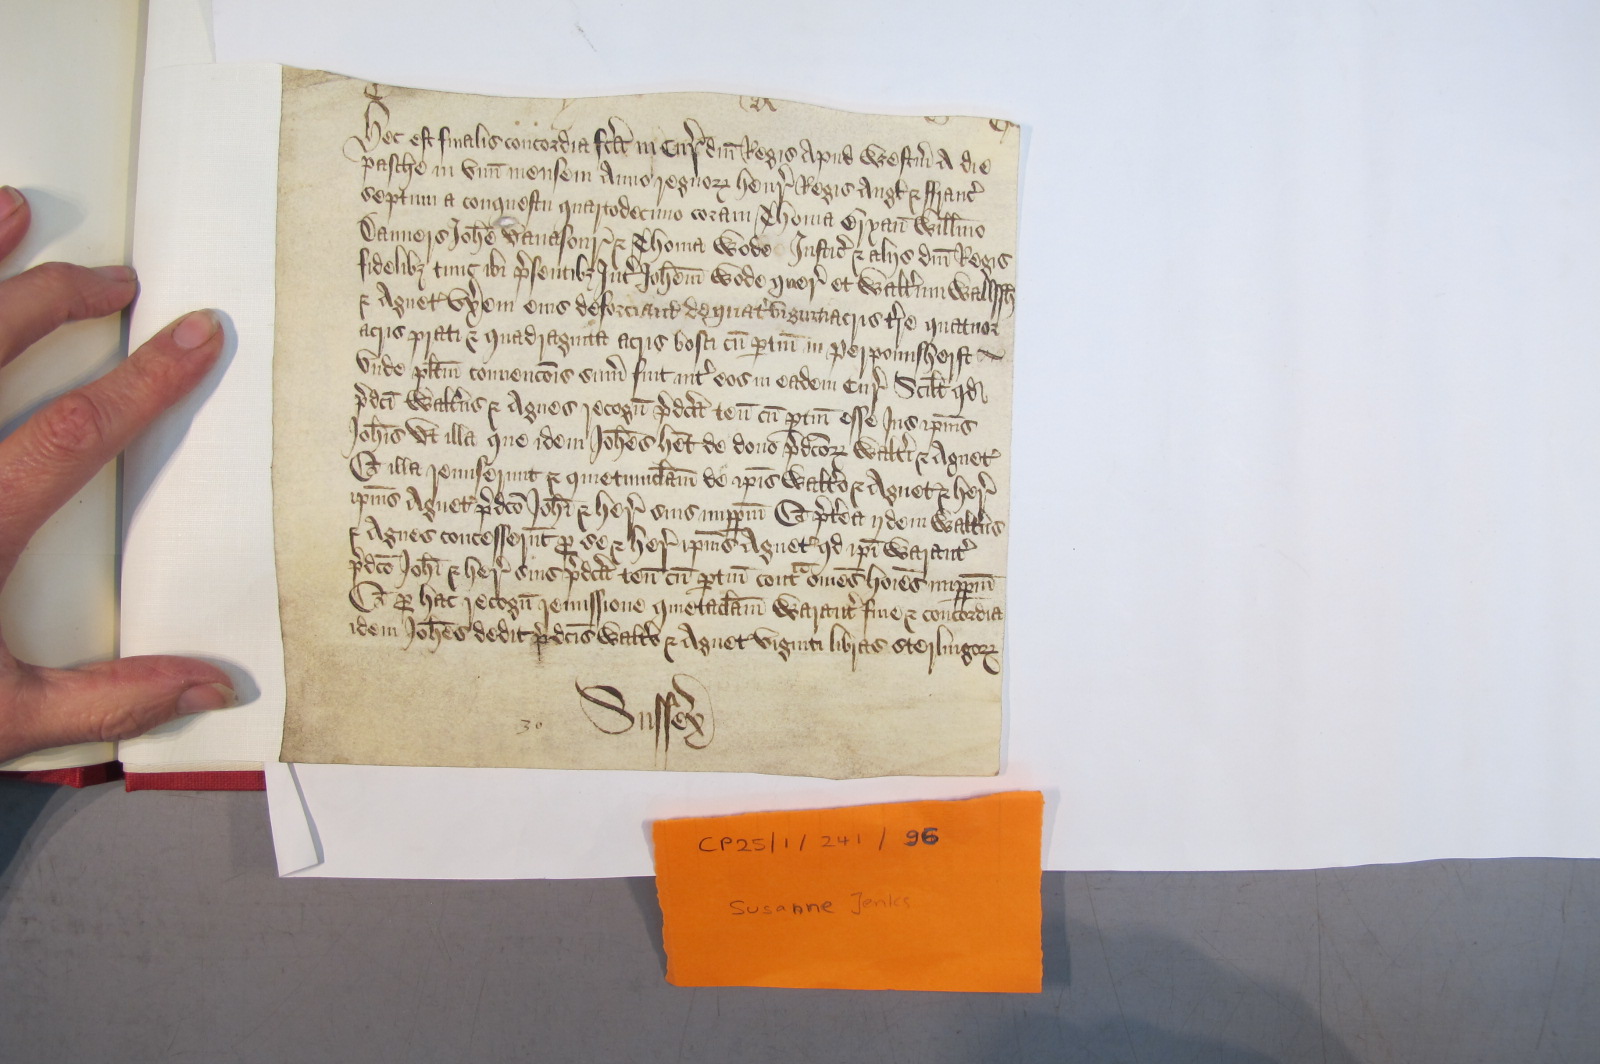 Hec est finalis concordia fc̄a in Cur̄ dn̄i Regis Apud Westm̄ A die
pasche in vnū mensem Anno regnoꝝ henr̄ Regis Angl̄ ⁊ ffranc̄
septimi a conquestu quartodecimo coram Thoma Bryan Willm̄o
Danvers Joh̄e Vavasour ⁊ Thoma Wode Justic̄ ⁊ aliis dn̄i Regis
fidelibꝫ tunc ibi p̄sentibꝫ Int̄ Joh̄em Wode quer̄ et Walt̄um Wallssh
⁊ Agnet̄ vx̄em eius deforciant̄ de quat̄viginti acris t̄re quatuor
acris prati ⁊ quadraginta acris bosci cū ptin̄ in Perpoundsherst
Vnde pl̄itm̄ convencōis sum̄ fuit int̄ eos in eadem Cur̄ Scil̄t qd̄
p̄dc̄i Walt̄us ⁊ Agnes recogn̄ p̄dc̄a ten̄ cū ptin̄ esse Jus ip̄ius
Joh̄is Vt illa que idem Joh̄es het̄ de dono p̄dc̄oꝝ Walt̄i ⁊ Agnet̄
Et illa remiserunt ⁊ quietumclam̄ de ip̄is Walt̄o ⁊ Agnet̄ ⁊ her̄
ip̄ius Agnet̄ p̄dc̄o Joh̄i ⁊ her̄ suis imppm̄ Et p̄t̄ea ijdem Walt̄us
⁊ Agnes concesserunt p se ⁊ her̄ ip̄ius Agnet̄ qd̄ ip̄i Warant̄
p̄dc̄o Joh̄i ⁊ her̄ suis p̄dc̄a ten̄ cū ptin̄ contᵃ om̄es hoīes imppm̄
Et p hac recogn̄ remissione quietaclam̄ Warant̄ fine ⁊ concordia
idem Joh̄es dedit p̄dc̄is Walt̄o ⁊ Agnet̄ viginti libras sterlingoꝝ
30 Sussex
CP25/1/241/96
Susanne Jenks